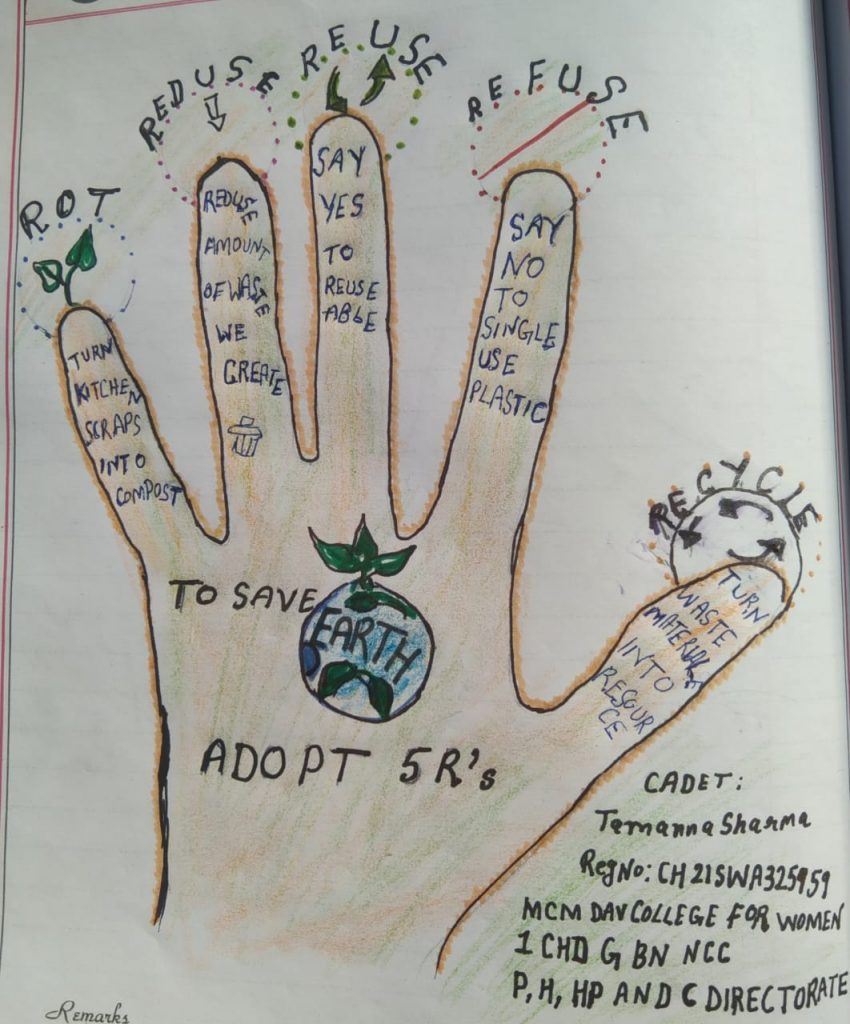 ROT
TURN
KITCHEN
SCRAPS
INTO
COMPOST
REDUSE
REDUSE
AMOUNT
OF WASTE
WE
CREATE
REUSE
SAY
YES
TO
REUSE
ABLE
REFUSE
SAY
NO
TO
SINGLE
USE
PLASTIC
RECYCLE
TURN
WASTE
MATERIALS
INTO
RESOUR
CE
TO SAVE
EARTH
ADOPT 5R's
CADET:
Tamanna Sharma
RegNo: CH21SWA325959
MCM DAV COLLEGE FOR WOMEN
1 CHD G BN NCC
P, H, HP AND C DIRECTORATE
Remarks